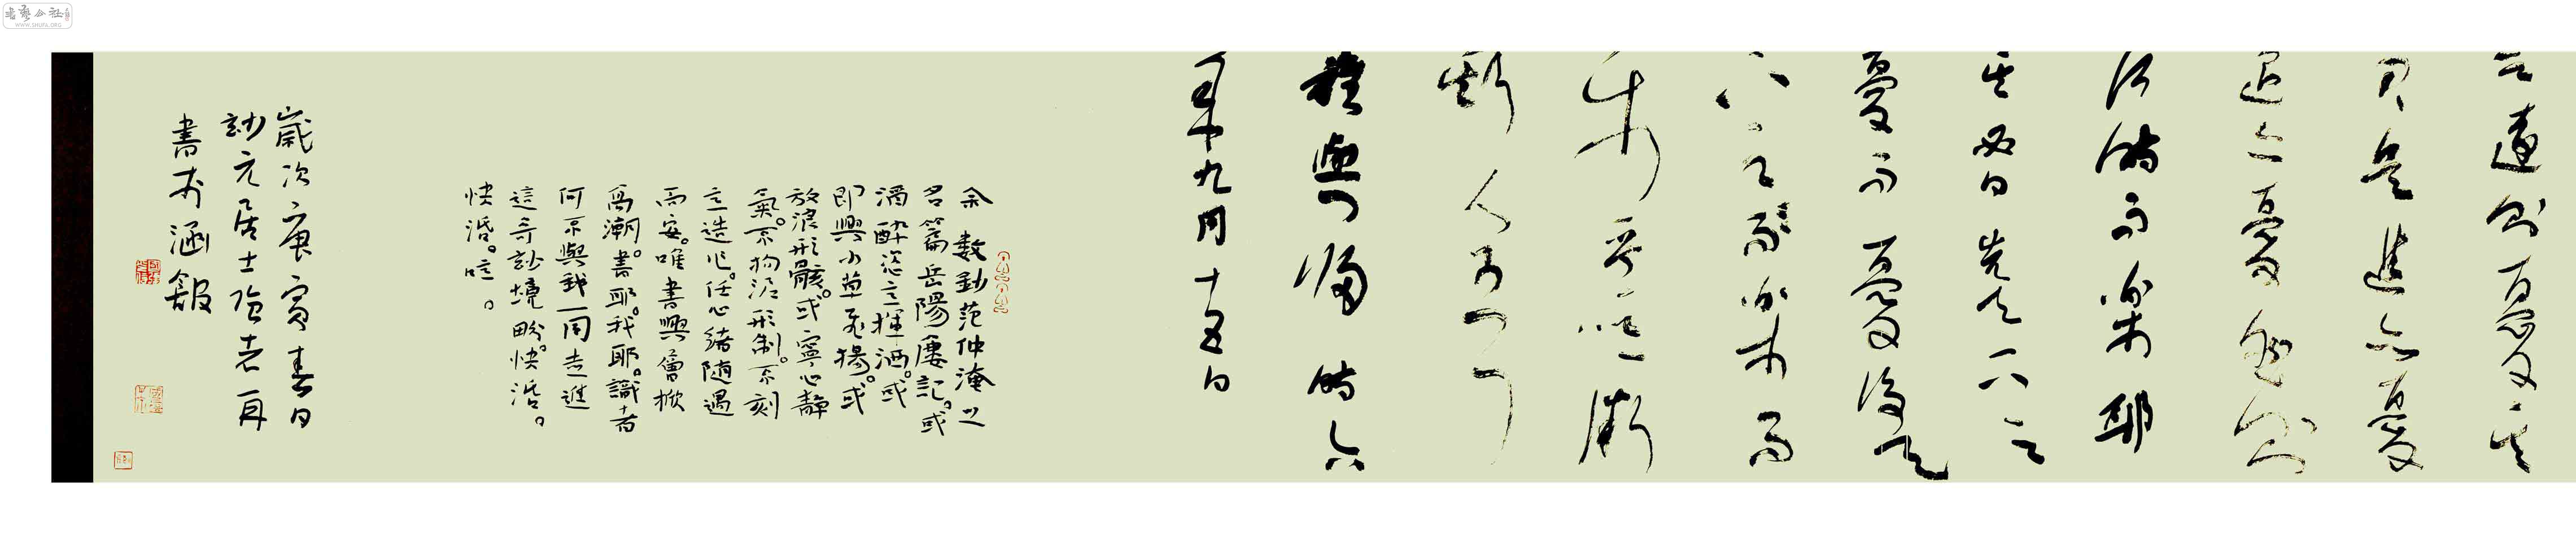 書藝公社
WWW.SHUFA.ORG
之遠則憂其
君是進亦憂
退亦憂然則
何時而樂耶
其必曰先天下之
憂而憂後天
下之樂而
樂乎噫微
斯人吾
誰與歸時六
年九月十五日
余數鈔范仲淹之
名篇岳陽廔記。或
酒酔恣意揮洒。或
即興小草飛揚。或
放浪形骸。或寧心靜
氣。不拘泥形制。不刻
意造化。任心緒隨遇
而安。唯書興會掀
高潮。書耶。我耶。識者
何不與我一同走進
這奇玅境。快活。
快活。哇。
歲次庚寅春日
玅元居士再
書於涵